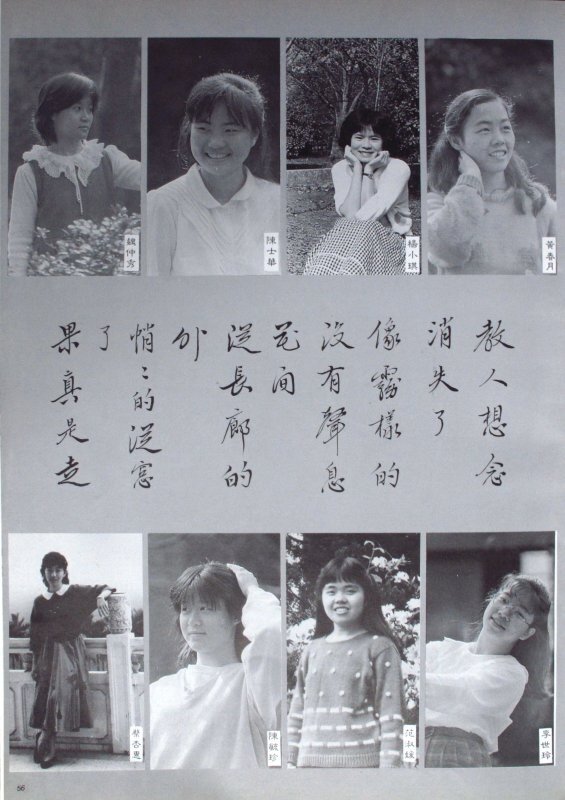 魏仲秀
陳士華
楊小琪
黃春月
果真是走
了
悄〻的從窗
外
從長廊的
花間
沒有聲息
像霧樣的
消失了
教人想念
李世玲
56